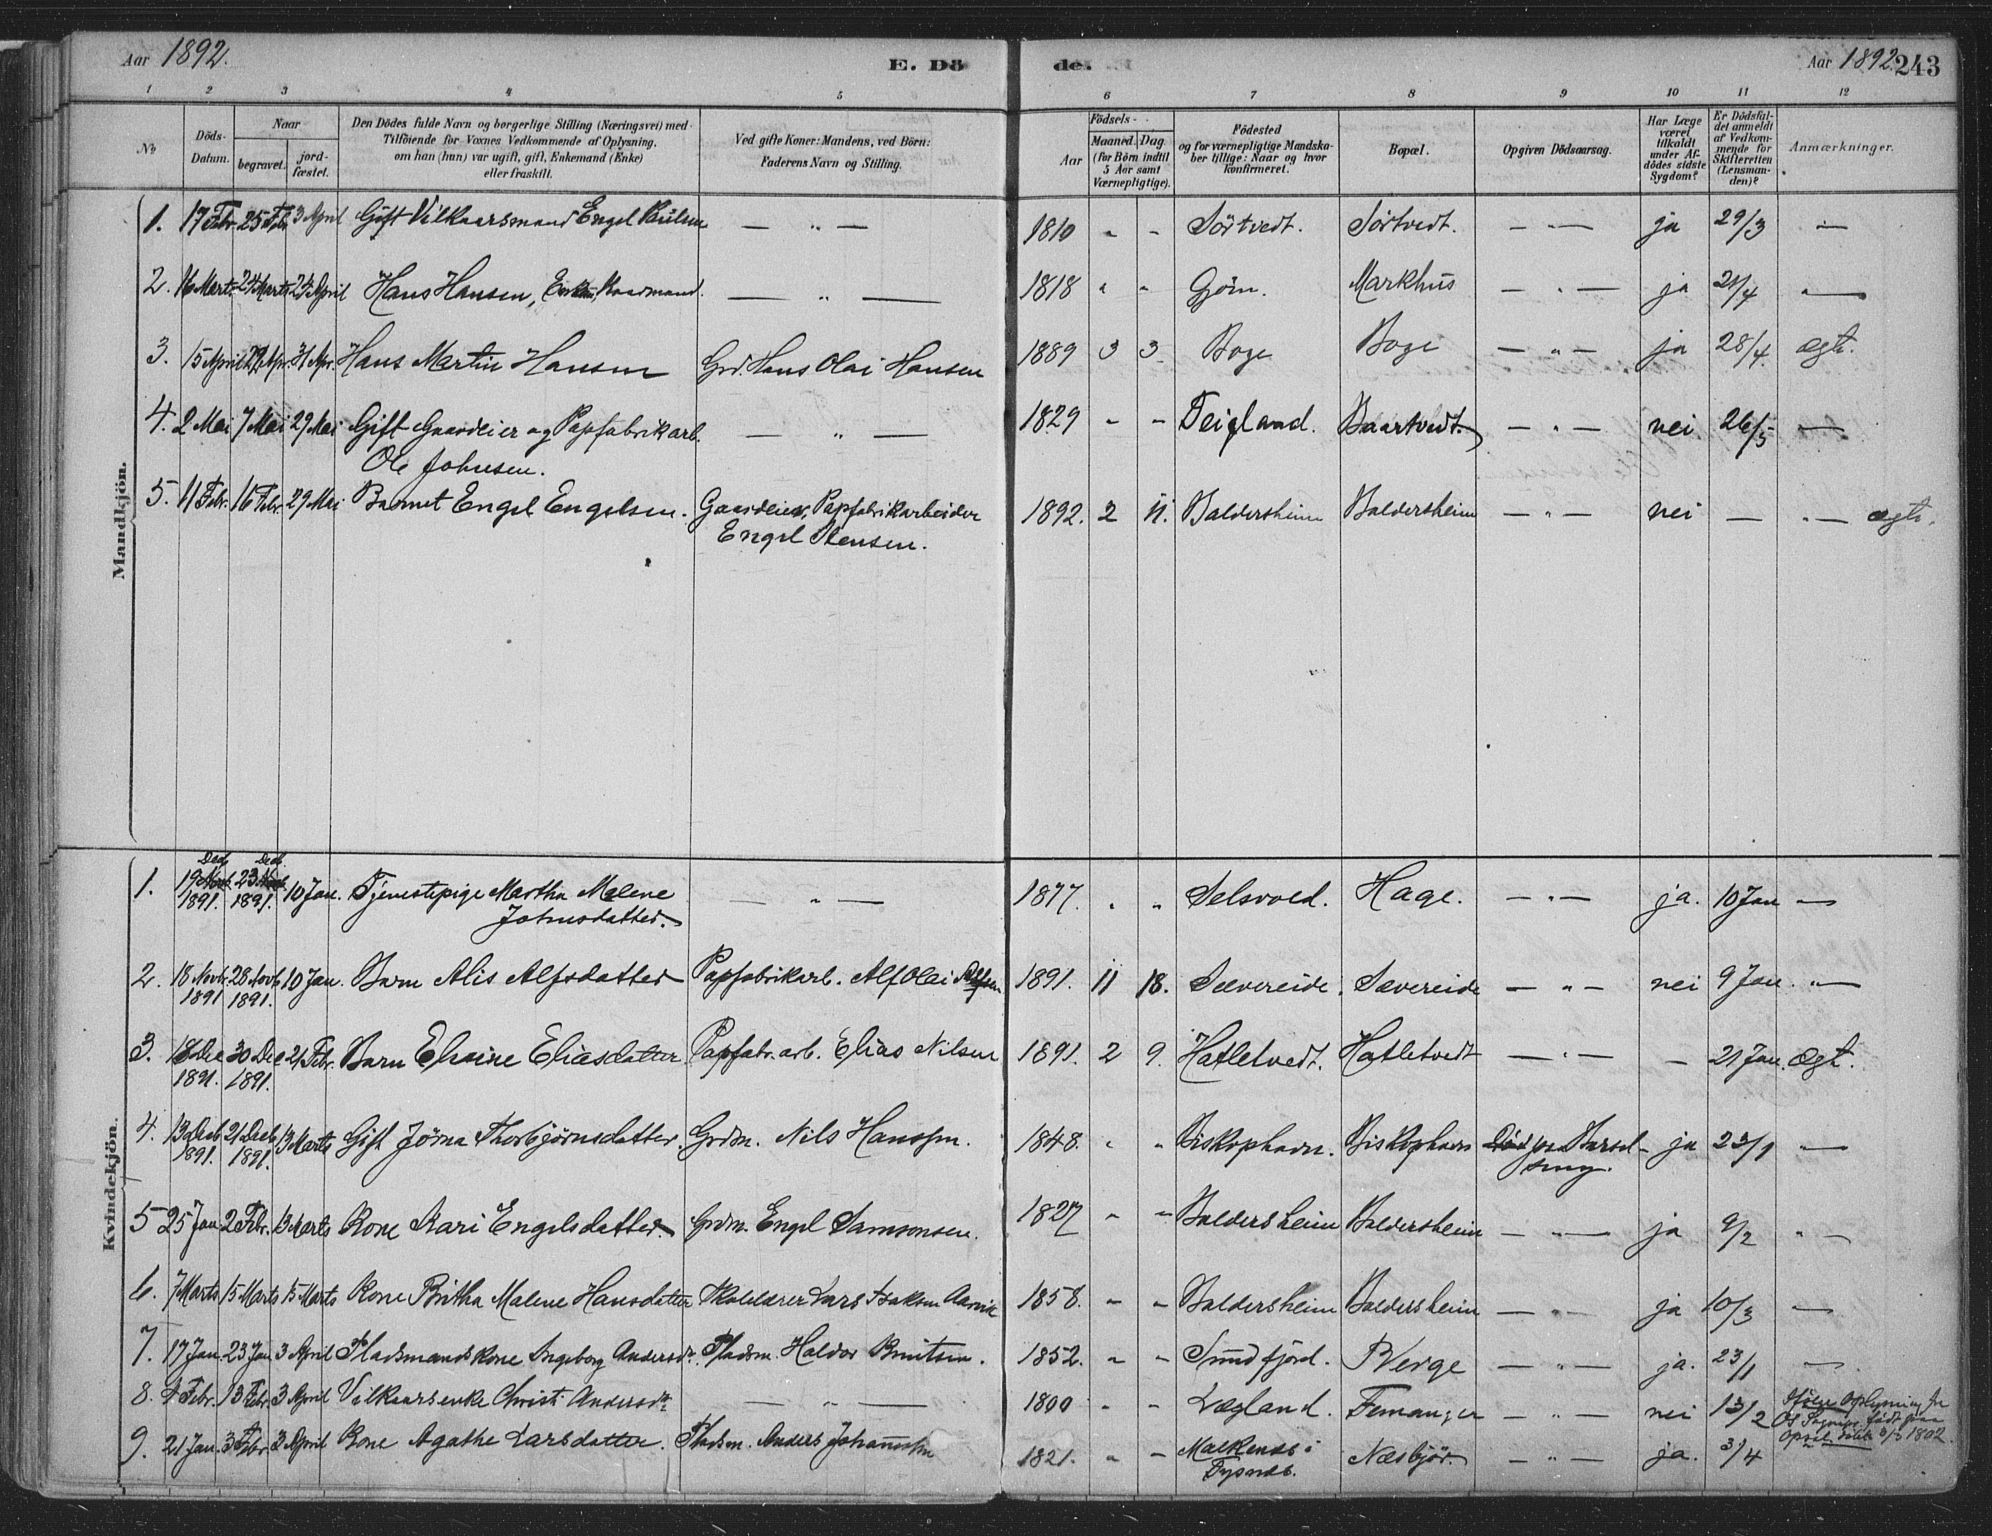 Aar 1892. E. Dö de. Aar 1892. 243
1 2 3 4 5 6 7 8 9 10 11 12
No
Döds-Datum.
Naar
begravet. jord-fæstet.
Den Dödes fulde Navn og borgerlige Stilling (Næringsvei) med
Tilföiende for Voxnes Vedkommende af Oplysning,
om han (hun) var ugift, gift, Enkemand (Enke)
eller fraskilt.
Ved gifte Koner: Mandens, ved Börn:
Faderens Navn og Stilling.
Födsels-
Aar Maaned. Dag
(for Börn indtil
5 Aar samt
Værnepligtige).
Födested
og for værnepligtige Mandska-
ber tillige: Naar og hvor
konfirmeret.
Bopæl.
Opgiven Dödsaarsag.
Har Læge
været
tilkaldt
under Af-
dödes sidste
Sygdom?
Er Dödsfal-
det anmeldt
af Vedkom-
mende for
Skifteretten
(Lensman-
den)?
Anmærkninger.
Mandkjön.
1. 17 Febr. 25 Feb. 3 April Gift Vilkaarsmand Engel Paulsen — „ — 1810 „ „ Sörtvedt. Sörtvedt. — „ — ja 29/3 —
2. 16 Marts 24 Marts 24 April Hans Hansen, Gaardmand. — „ — 1818 „ „ Gjöm. Markhus — „ — ja 21/4 „ —
3. 15 April Apr. Apr. Hans Martin Hansen Grd. Hans Olai Hansen 1889 3 3 Boge Boge — „ — ja 28/4 ægte.
4. 2 Mai 7 Mai 29 Mai Gift Gaardeier og Papfabrikarb. — „ — 1829 „ „ Teigland. Baartvedt. — „ — nei 26/5 —
Ole Johnsen.
5. 11 Febr. 16 Febr. 29 Mai Barnet Engel Engelsen. Gaardeier, Papfabrikarbeider 1892. 2 11. Baldersheim Baldersheim — „ — nei — „ — ægte.
Engel Stensen.
Kvindekjön.
1. 19 Decb. 1891. 23 Decb. 1891. 10 Jan. Tjenestepige Martha Malene — „ — 1877. „ „ Selsvold. Hage. — „ — ja. 10 Jan —
Johnsdatter.
2. 18 Novb. 1891 28 Novb 1891. 10 Jan. Barn Alis Alfsdatter Papfabrikarb. Alf Olai Alfsen 1891. 11 18. Sævereide. Sævereide — „ — nei 9 Jan. „ —
3. 18 Dec 1891. 30 Dec 1891. 21 Febr. Barn Eliasdatter Papfabr. arb. Elias Nilsen 1891. 2 9. Hatletvedt. Hatletvedt — „ — — 21 Jan. ægt.
4. 13 Decb 1891. 21 Decb 1891. 13 Marts Gift Jörna Thorbjörnsdatter. Grdm. Nils Hanssen. 1848. „ „ Biskophavn. Biskophavn Död paa Barsel- ja 23/1 „ —
seng.
5 25 Jan 2 Febr. 13 Marts Kone Kari Engelsdatter. Grdm. Engel Samsonsen. 1827 „ „ Baldersheim Baldersheim — „ — ja 9/2 „ —
6. 7 Marts 15 Marts 15 Marts Kone Britha Malene Hansdatter Skolelærer Lars Isaksen Aarvik 1858. „ „ Baldersheim Baldersheim — „ — ja 10/3 —
7. 17 Jan. 23 Jan. 3 April Pladsmandskone Ingeborg Andersdr. Pladsm. Haldor Knutsen. 1852. „ „ Sundfjord. Berge — „ — ja. 23/1 —
8. 4 Febr. 13 Febr. 3 April Vilkaarsenke Christi Andersdr. — „ — 1800 „ „ Lægland. Femanger — „ — nei 13/2 Ifölge Oplysning
födt 1802.
9. 21 Jan. 3 Febr. 3 April Kone Agathe Larsdatter. Pladsm. Anders Johannessen 1821. „ „ Malkenæs i Næsbjör. — „ — ja. 3/4
Tysnæs.